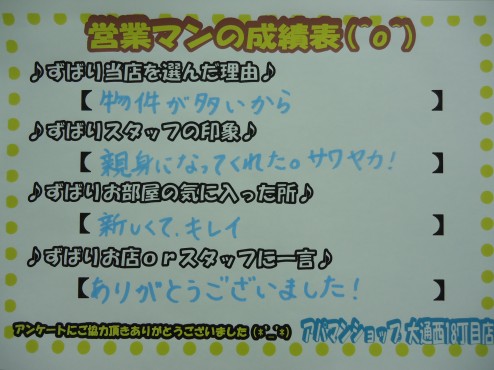 営業マンの成績表(^o^)
♪ずばり当店を選んだ理由♪
【物件が多いから】
♪ずばりスタッフの印象♪
【親身になってくれた。サワヤカ!】
♪ずばりお部屋の気に入った所♪
【新しくて、キレイ】
♪ずばりお店orスタッフに一言♪
【ありがとうございました!】
アンケートにご協力頂きありがとうございました(*^_^*)
アパマンショップ 大通西18丁目店